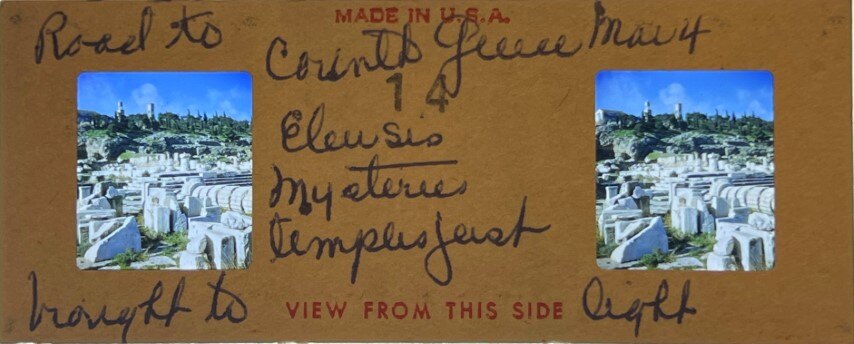 MADE IN U.S.A.
Road to Corinth Greece Mar 4
14
Eleusis
Mysteries
temples just
brought to light
VIEW FROM THIS SIDE